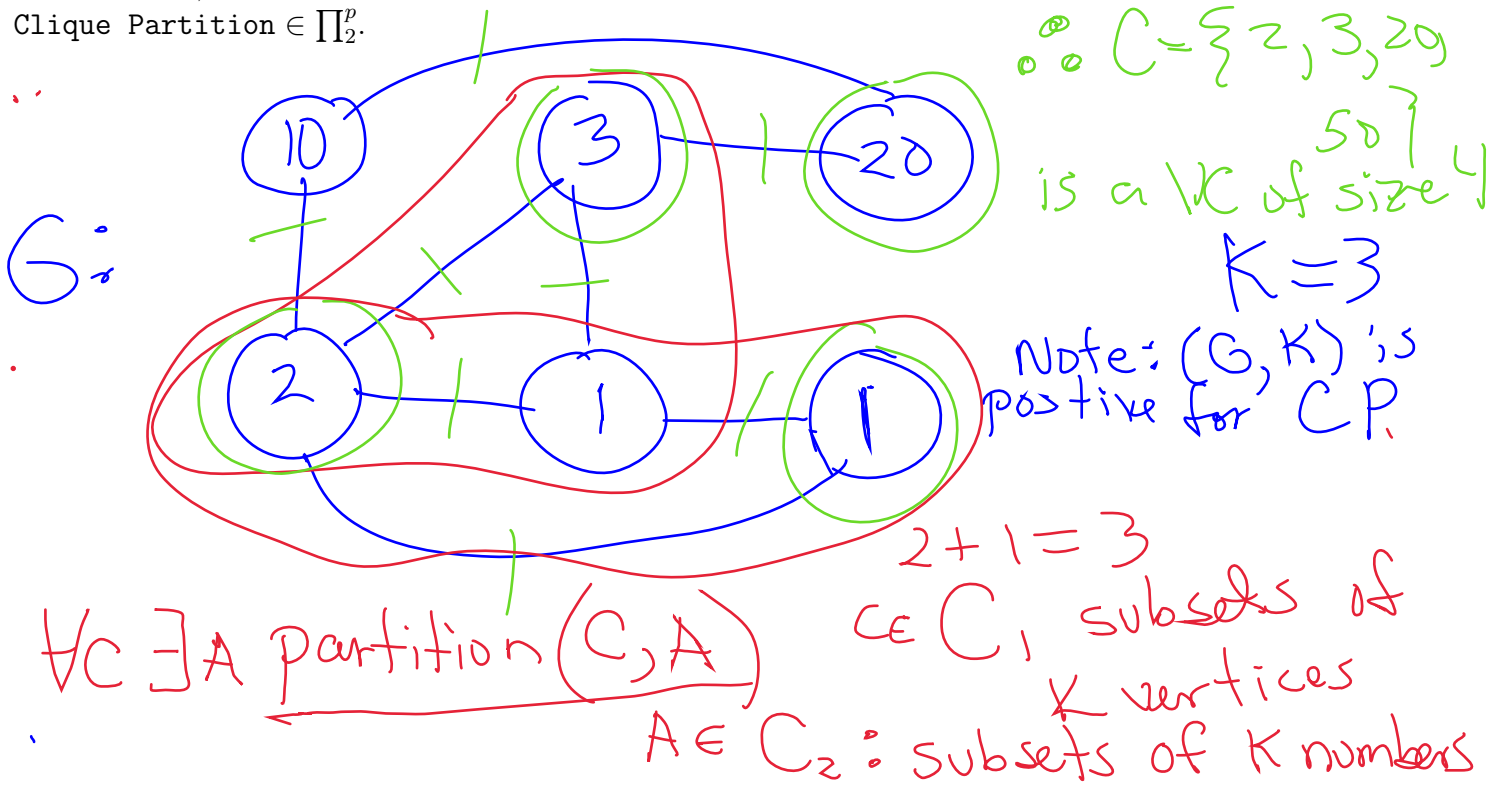 Clique Partition ∈ ∏₂ᵖ.
∴ C={2,3,20,
50}
is a VC of size 4
10
3
20
G:
K=3
2
1
1
Note: (G,K) is
postive for CP.
2+1=3
∀C ∃A partition(C,A)
C∈ C₁ subsets of
K vertices
A∈ C₂: subsets of K numbers